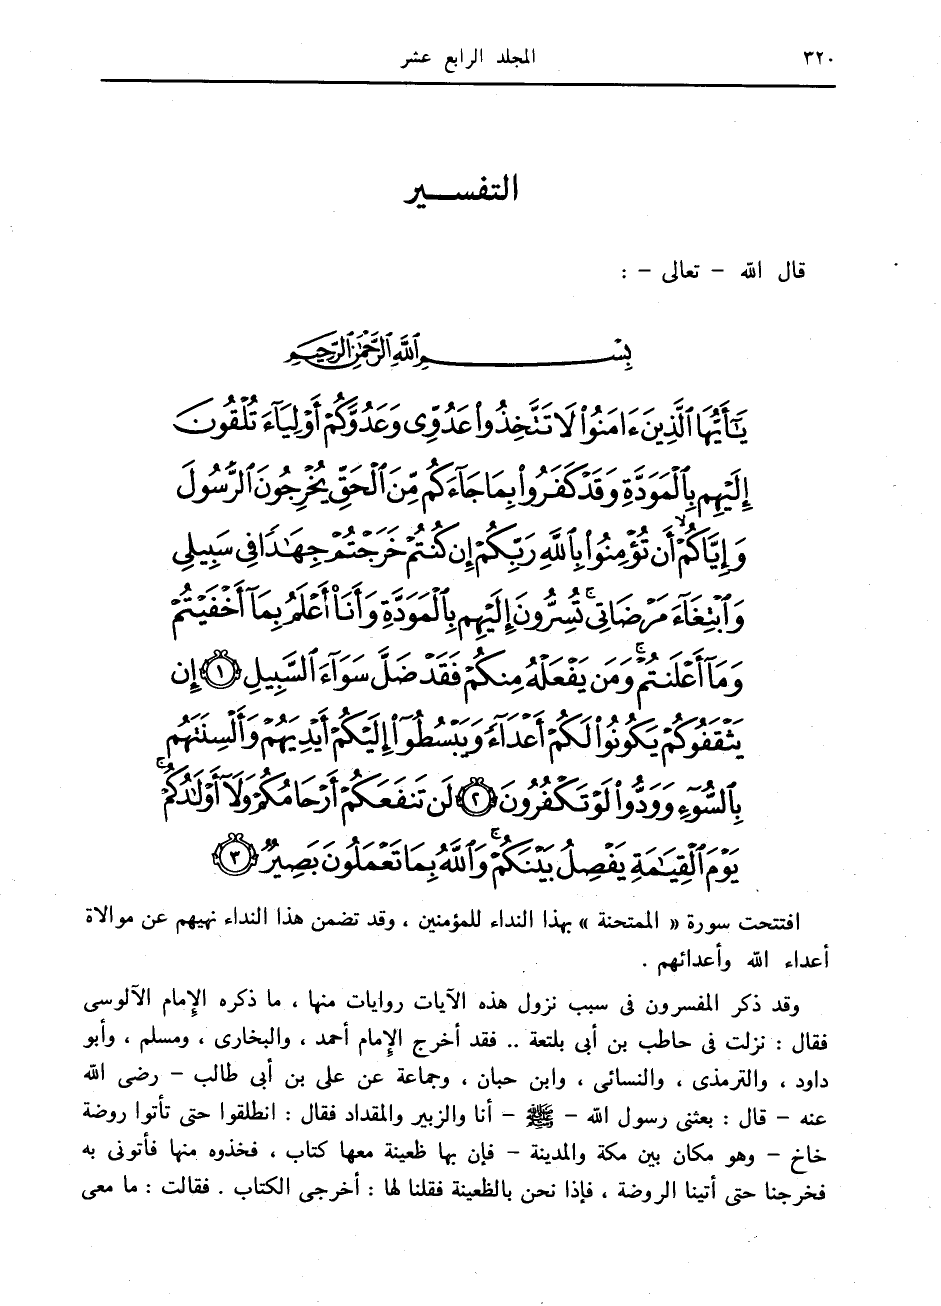 ٣٢٠ المجلد الرابع عشر
التفسير
قال الله – تعالى – :
بِسْمِ ٱللَّهِ ٱلرَّحْمَٰنِ ٱلرَّحِيمِ
يَٰٓأَيُّهَا ٱلَّذِينَ ءَامَنُوا۟ لَا تَتَّخِذُوا۟ عَدُوِّى وَعَدُوَّكُمْ أَوْلِيَآءَ تُلْقُونَ
إِلَيْهِم بِٱلْمَوَدَّةِ وَقَدْ كَفَرُوا۟ بِمَا جَآءَكُم مِّنَ ٱلْحَقِّ يُخْرِجُونَ ٱلرَّسُولَ
وَإِيَّاكُمْ ۙ أَن تُؤْمِنُوا۟ بِٱللَّهِ رَبِّكُمْ إِن كُنتُمْ خَرَجْتُمْ جِهَٰدًا فِى سَبِيلِى
وَٱبْتِغَآءَ مَرْضَاتِى ۚ تُسِرُّونَ إِلَيْهِم بِٱلْمَوَدَّةِ وَأَنَا۠ أَعْلَمُ بِمَآ أَخْفَيْتُمْ
وَمَآ أَعْلَنتُمْ ۚ وَمَن يَفْعَلْهُ مِنكُمْ فَقَدْ ضَلَّ سَوَآءَ ٱلسَّبِيلِ ١ إِن
يَثْقَفُوكُمْ يَكُونُوا۟ لَكُمْ أَعْدَآءً وَيَبْسُطُوٓا۟ إِلَيْكُمْ أَيْدِيَهُمْ وَأَلْسِنَتَهُم
بِٱلسُّوٓءِ وَوَدُّوا۟ لَوْ تَكْفُرُونَ ٢ لَن تَنفَعَكُمْ أَرْحَامُكُمْ وَلَآ أَوْلَٰدُكُمْ ۚ
يَوْمَ ٱلْقِيَٰمَةِ يَفْصِلُ بَيْنَكُمْ ۚ وَٱللَّهُ بِمَا تَعْمَلُونَ بَصِيرٌ ٣
افتتحت سورة « الممتحنة » بهذا النداء للمؤمنين ، وقد تضمن هذا النداء نهيهم عن موالاة
أعداء الله وأعدائهم .
وقد ذكر المفسرون فى سبب نزول هذه الآيات روايات منها ، ما ذكره الإمام الآلوسى
فقال : نزلت فى حاطب بن أبى بلتعة .. فقد أخرج الإمام أحمد ، والبخارى ، ومسلم ، وأبو
داود ، والترمذى ، والنسائى ، وابن حبان ، وجماعة عن على بن أبى طالب – رضى الله
عنه – قال : بعثنى رسول الله – ﷺ – أنا والزبير والمقداد فقال : انطلقوا حتى تأتوا روضة
خاخ – وهو مكان بين مكة والمدينة – فإن بها ظعينة معها كتاب ، فخذوه منها فأتونى به
فخرجنا حتى أتينا الروضة ، فإذا نحن بالظعينة فقلنا لها : أخرجى الكتاب . فقالت : ما معى